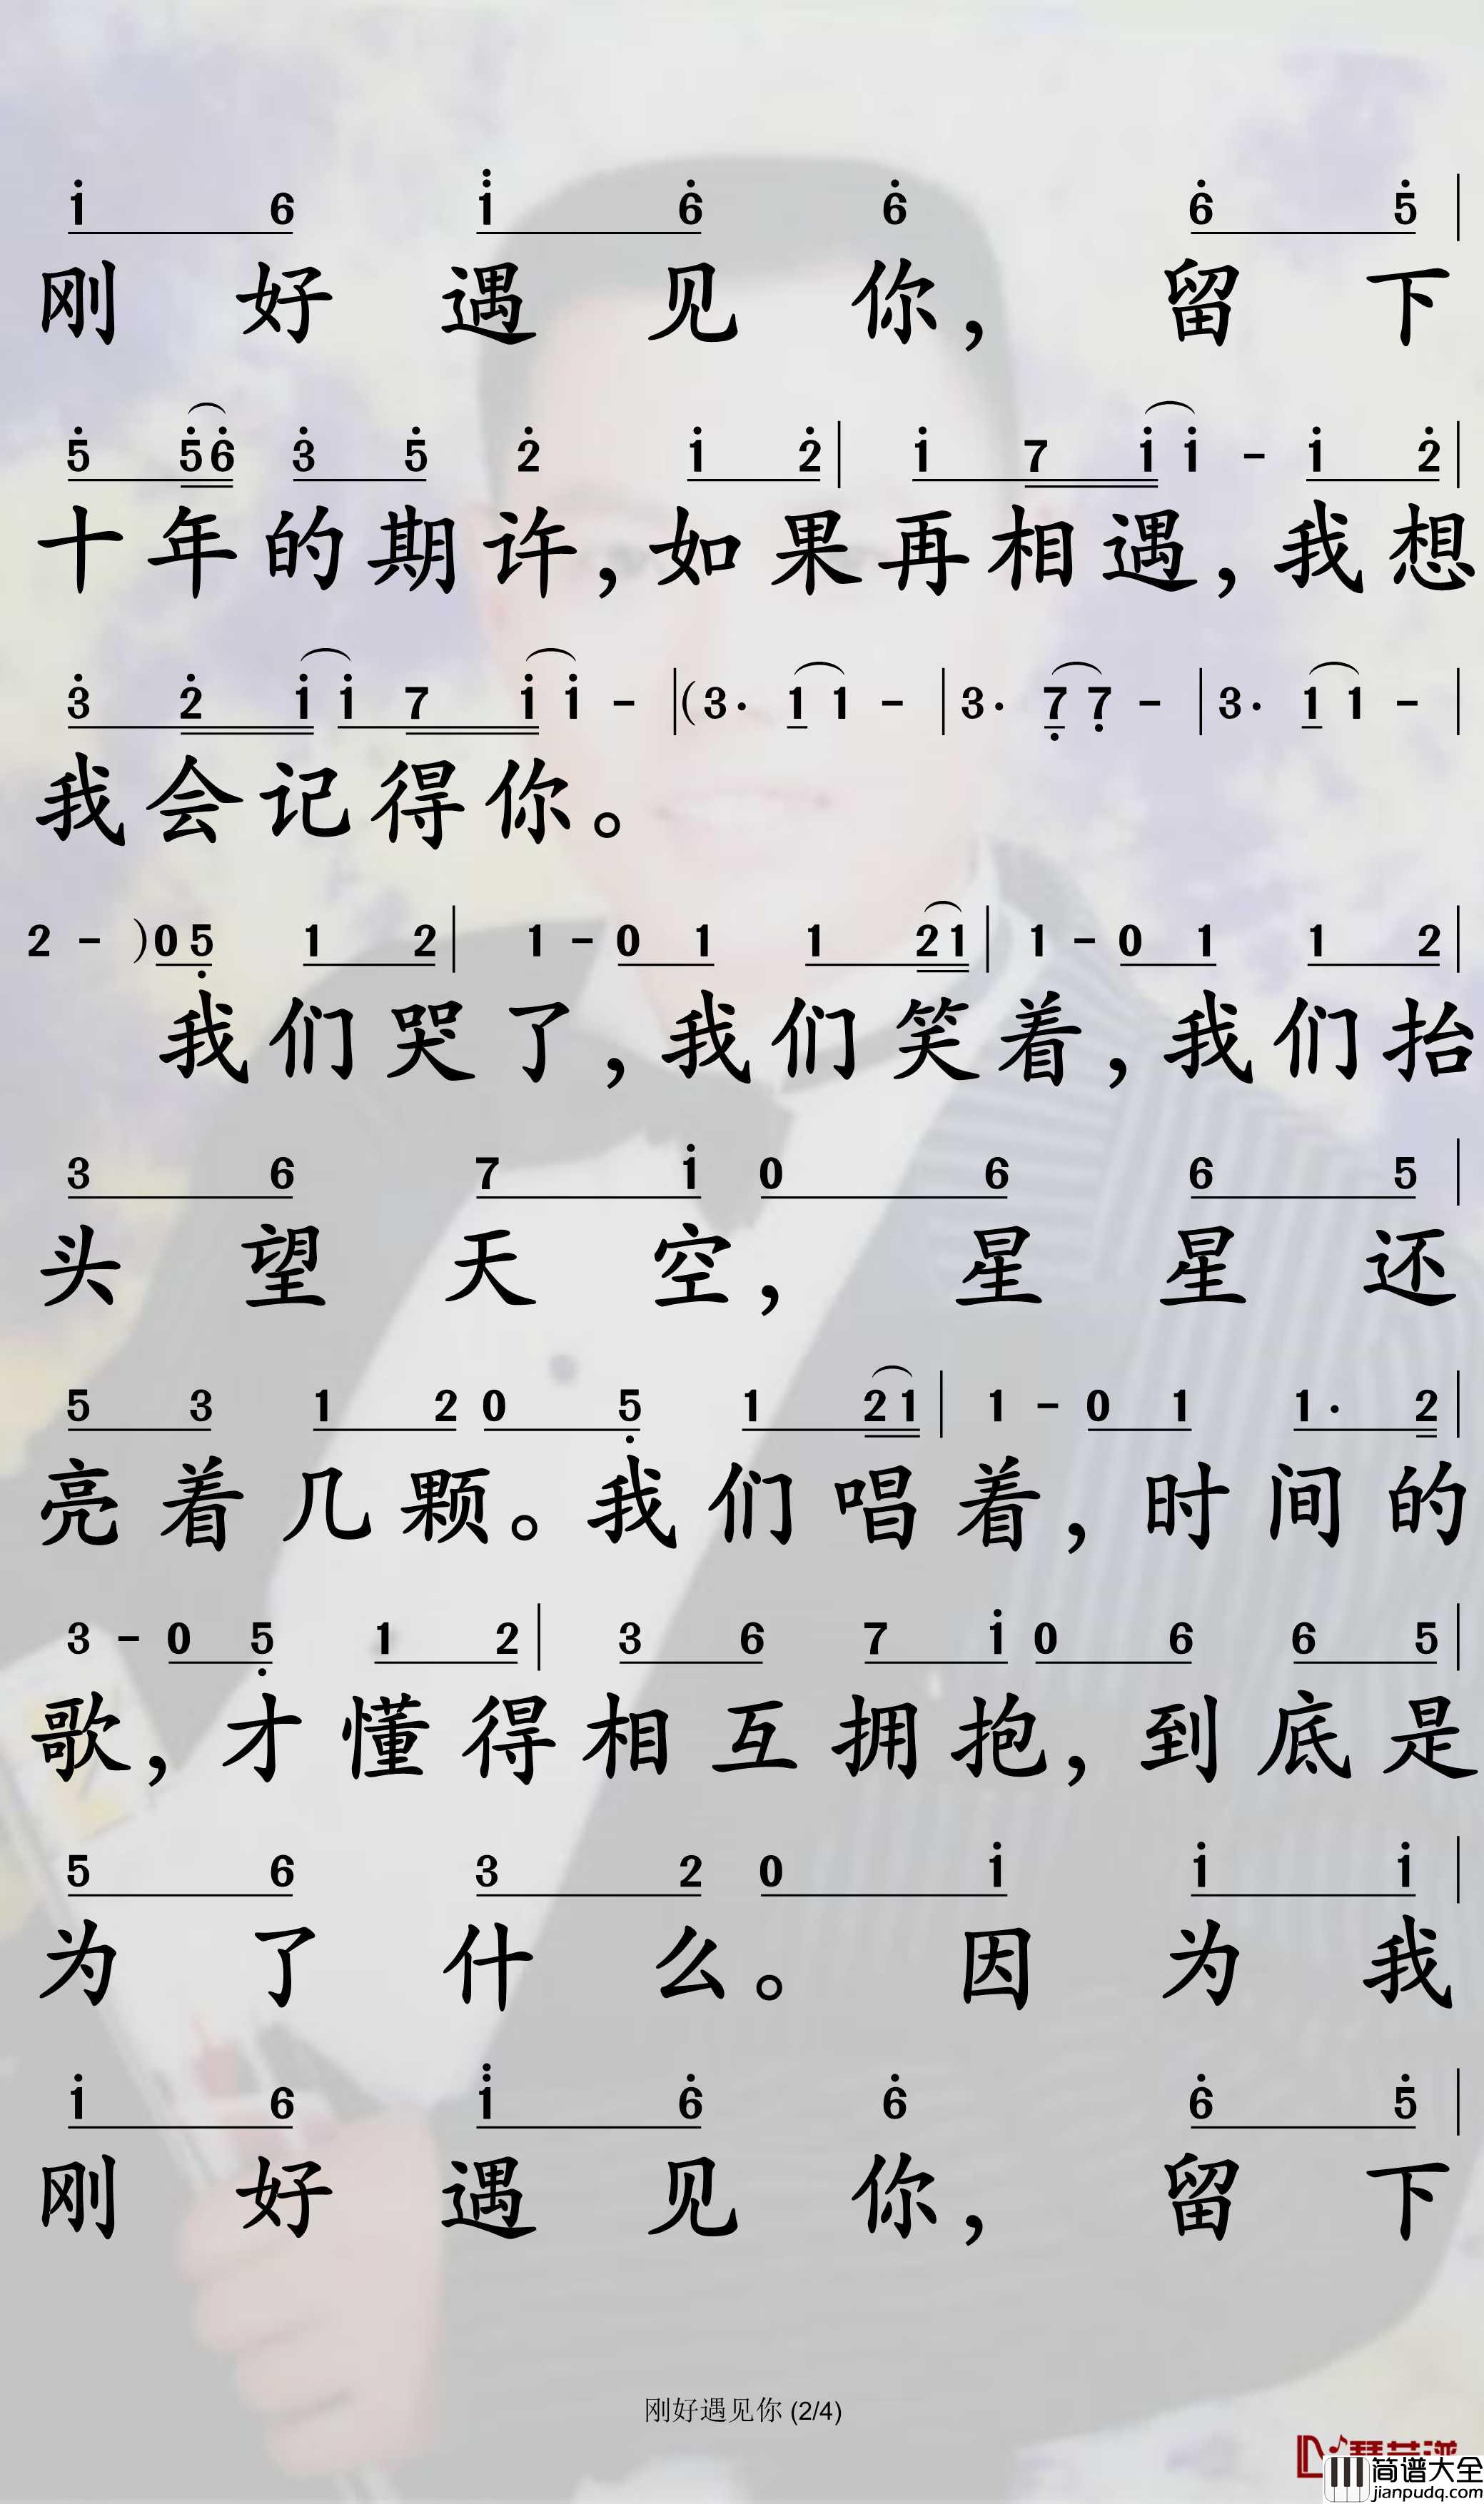 i 6 i 6 6 6 5 |
刚 好 遇 见 你， 留 下
5 5 6 3 5 2 1 2 | 1 7 1 1 - 1 2 |
十 年 的 期 许， 如 果 再 相 遇， 我 想
3 2 1 1 7 1 1 - | (3· 1 1 - | 3· 7 7 - | 3· 1 1 - |
我 会 记 得 你。
2 - ) 0 5 1 2 | 1 - 0 1 1 2 1 | 1 - 0 1 1 2 |
我 们 哭 了， 我 们 笑 着， 我 们 抬
3 6 7 i 0 6 6 5 |
头 望 天 空， 星 星 还
5 3 1 2 0 5 1 2 1 | 1 - 0 1 1· 2 |
亮 着 几 颗。 我 们 唱 着， 时 间 的
3 - 0 5 1 2 | 3 6 7 i 0 6 6 5 |
歌， 才 懂 得 相 互 拥 抱， 到 底 是
5 6 3 2 0 i i i |
为 了 什 么。 因 为 我
i 6 i 6 6 6 5 |
刚 好 遇 见 你， 留 下
刚好遇见你 (2/4)
简谱大全
jianpudq.com